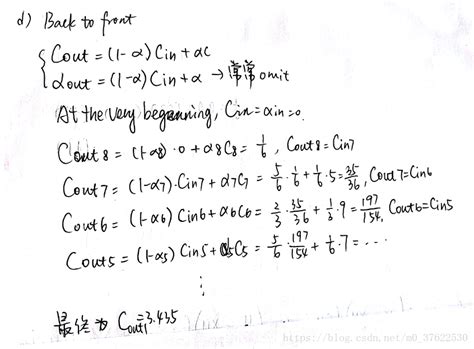 d) Back to front
Cout = (1-α)Cin + αC
αout = (1-α)Cin + α → 常常omit
At the very beginning, Cin=αin=0.
Cout8 = (1-α8)·0 + α8C8 = 1/6, Cout8=Cin7
Cout7 = (1-α7)·Cin7 + α7C7 = 5/6·1/6 + 1/6·5 = 35/36, Cout7=Cin6
Cout6 = (1-α6)Cin6 + α6C6 = 2/3·35/36 + 1/3·9 = 197/154, Cout6=Cin5
Cout5 = (1-α5)Cin5 + α5C5 = 5/6·197/154 + 1/6·7 = ...
⋮
最终为 Cout1=3.435
https://blog.csdn.net/m0_37622530